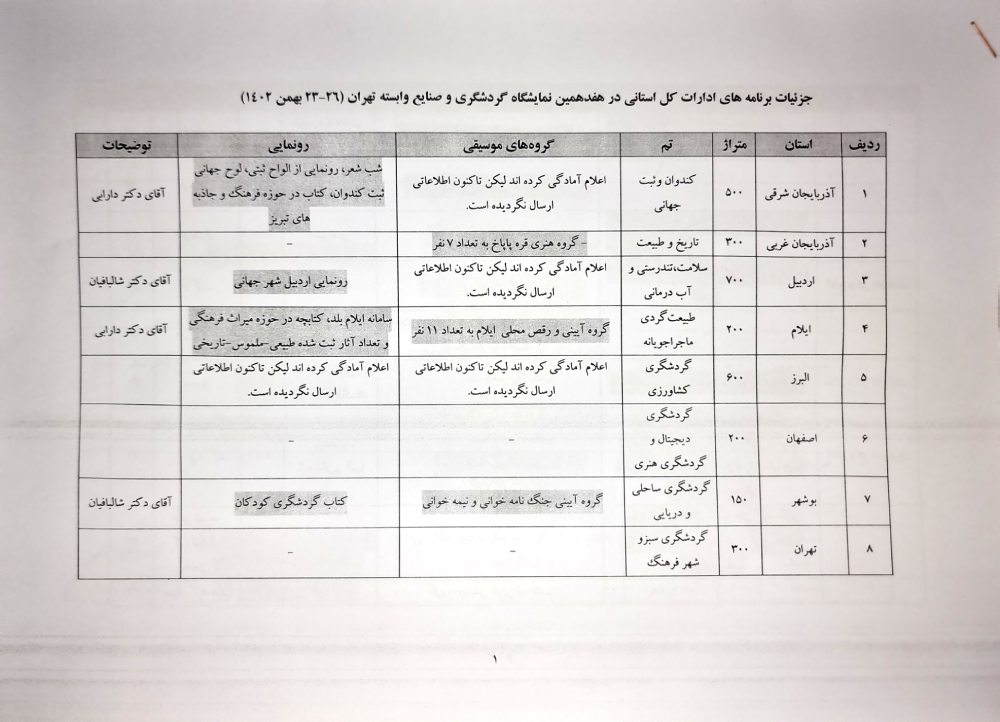 جزئیات برنامه های ادارات کل استانی در هفدهمین نمایشگاه گردشگری و صنایع وابسته تهران (۲۶-۲۳ بهمن ۱۴۰۲)
ردیف استان متراژ تم گروه‌های موسیقی رونمایی توضیحات
۱ آذربایجان شرقی ۵۰۰ کندوان وثبت جهانی اعلام آمادگی کرده اند لیکن تاکنون اطلاعاتی ارسال نگردیده است. شب شعر، رونمایی از الواح ثبتی، لوح جهانی ثبت کندوان، کتاب در حوزه فرهنگ و جاذبه های تبریز آقای دکتر دارابی
۲ آذربایجان غربی ۳۰۰ تاریخ و طبیعت - گروه هنری قره پاپاخ به تعداد ۷ نفر -
۳ اردبیل ۷۰۰ سلامت،تندرستی و آب درمانی اعلام آمادگی کرده اند لیکن تاکنون اطلاعاتی ارسال نگردیده است. رونمایی اردبیل شهر جهانی آقای دکتر شالبافیان
۴ ایلام ۲۰۰ طبیعت‌گردی ماجراجویانه گروه آیینی و رقص محلی ایلام به تعداد ۱۱ نفر سامانه ایلام بلد، کتابچه در حوزه میراث فرهنگی و تعداد آثار ثبت شده طبیعی-ملموس-تاریخی آقای دکتر دارابی
۵ البرز ۶۰۰ گردشگری کشاورزی اعلام آمادگی کرده اند لیکن تاکنون اطلاعاتی ارسال نگردیده است. اعلام آمادگی کرده اند لیکن تاکنون اطلاعاتی ارسال نگردیده است.
۶ اصفهان ۲۰۰ گردشگری دیجیتال و گردشگری هنری - -
۷ بوشهر ۱۵۰ گردشگری ساحلی و دریایی گروه آیینی جنگ نامه خوانی و نیمه خوانی کتاب گردشگری کودکان آقای دکتر شالبافیان
۸ تهران ۳۰۰ گردشگری سبزو شهر فرهنگ - -
۱